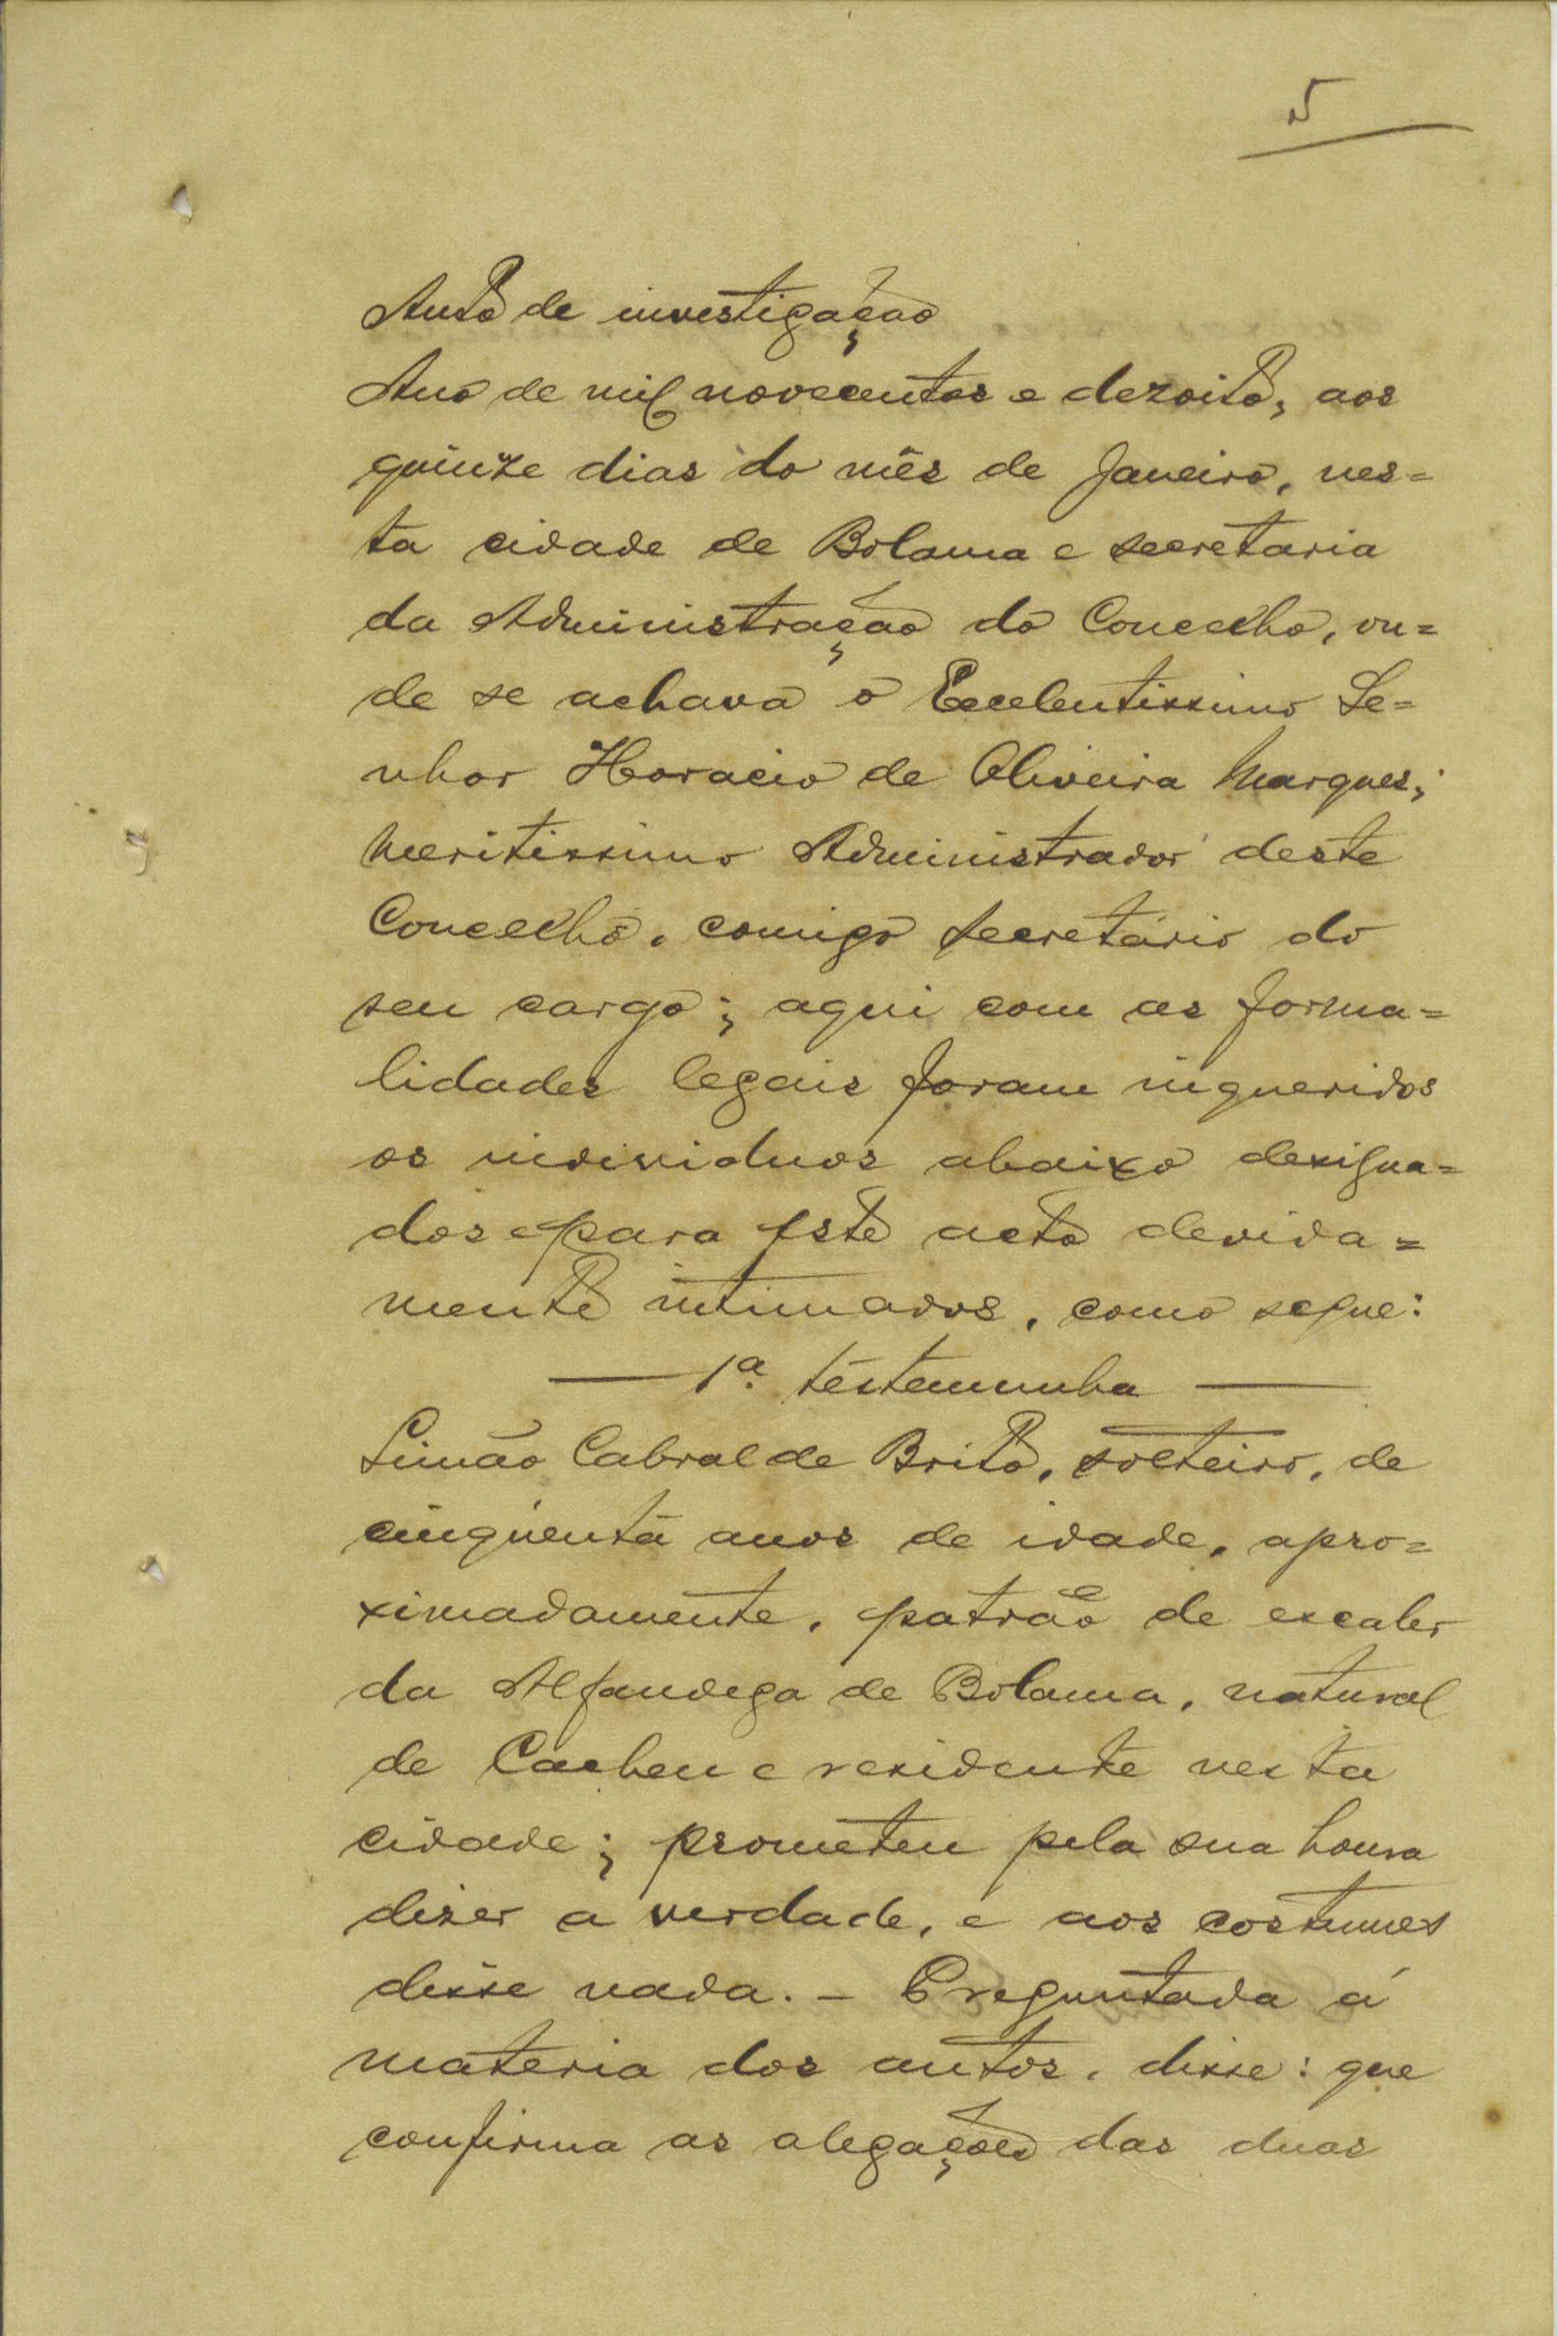 5
Auto de investigação
Ano de mil novecentos e dezoito, aos
quinze dias do mês de Janeiro, nes=
ta cidade de Bolama e secretaria
da Administração do Concelho, on=
de se achava o Excelentissimo Se=
nhor Horacio de Oliveira Marques,
Meritissimo Administrador deste
Concelho, comigo secretário do
seu cargo; aqui com as forma=
lidades legais foram inqueridos
os individuos abaixo designa=
dos e para este acto devida=
mente intimados, como segue:
— 1ª. testemunha —
Simão Cabral de Brito, solteiro, de
cinqüenta anos de idade, apro=
ximadamente, patrão de escaler
da Alfandega de Bolama, natural
de Cacheu e residente nesta
cidade; prometeu pela sua honra
dizer a verdade, e aos costumes
disse nada. – Preguntada á
materia dos autos, disse: que
confirma as alegações das duas